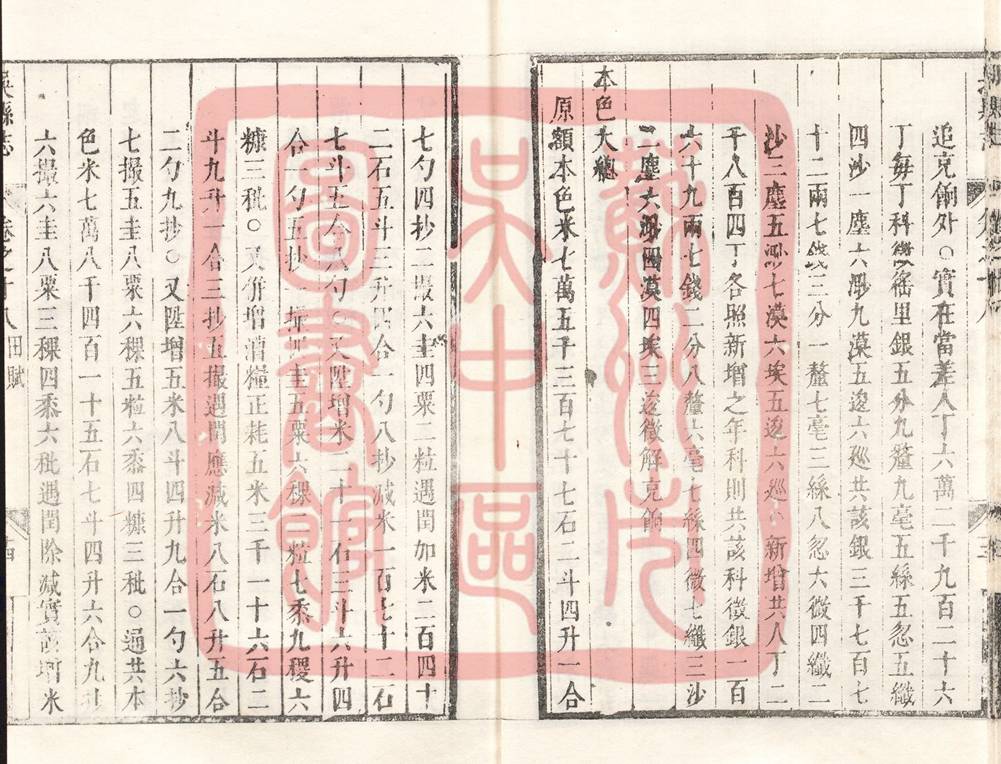 追充餉外○實在當差人丁六萬二千九百二十六
丁每丁科徵徭里銀五分九釐九毫五絲五忽五纖
四沙一塵六渺九漠五逡六廵共該銀三千七百七
十二兩七錢三分一釐七毫三絲八忽六微四纖二
沙二塵五渺七漠六埃五逡六廵○新增共人丁二
千八百四丁各照新增之年科則共該科徵銀一百
六十九兩七錢二分八釐六毫七絲四微七纖三沙
二塵六渺四漠四埃三逡徵解充餉
本色大總
原額本色米七萬五千三百七十七石二斗四升一合
七勺四抄二撮六圭四粟二粒遇閏加米二百四十
二石五斗三升四合一勺八抄減米一百七十二石
七斗五合八勺○又陞增米二十一石三斗六升四
合一勺五抄一撮四圭五粟六稞二粒七黍九稷六
糠三秕○又併增漕糧正耗五米三千一十六石二
斗九升一合三抄五撮遇閏應減米八石八升五合
二勺九抄○又陞增五米八斗四升九合一勺六抄
七撮五圭八粟六稞五粒六黍四糠三秕○通共本
色米七萬八千四百一十五石七斗四升六合九抄
六撮六圭八粟三稞四黍六秕遇閏除減實該增米
吳縣志
卷之十八 田賦
十四
蘇州市
吳中區
圖書館